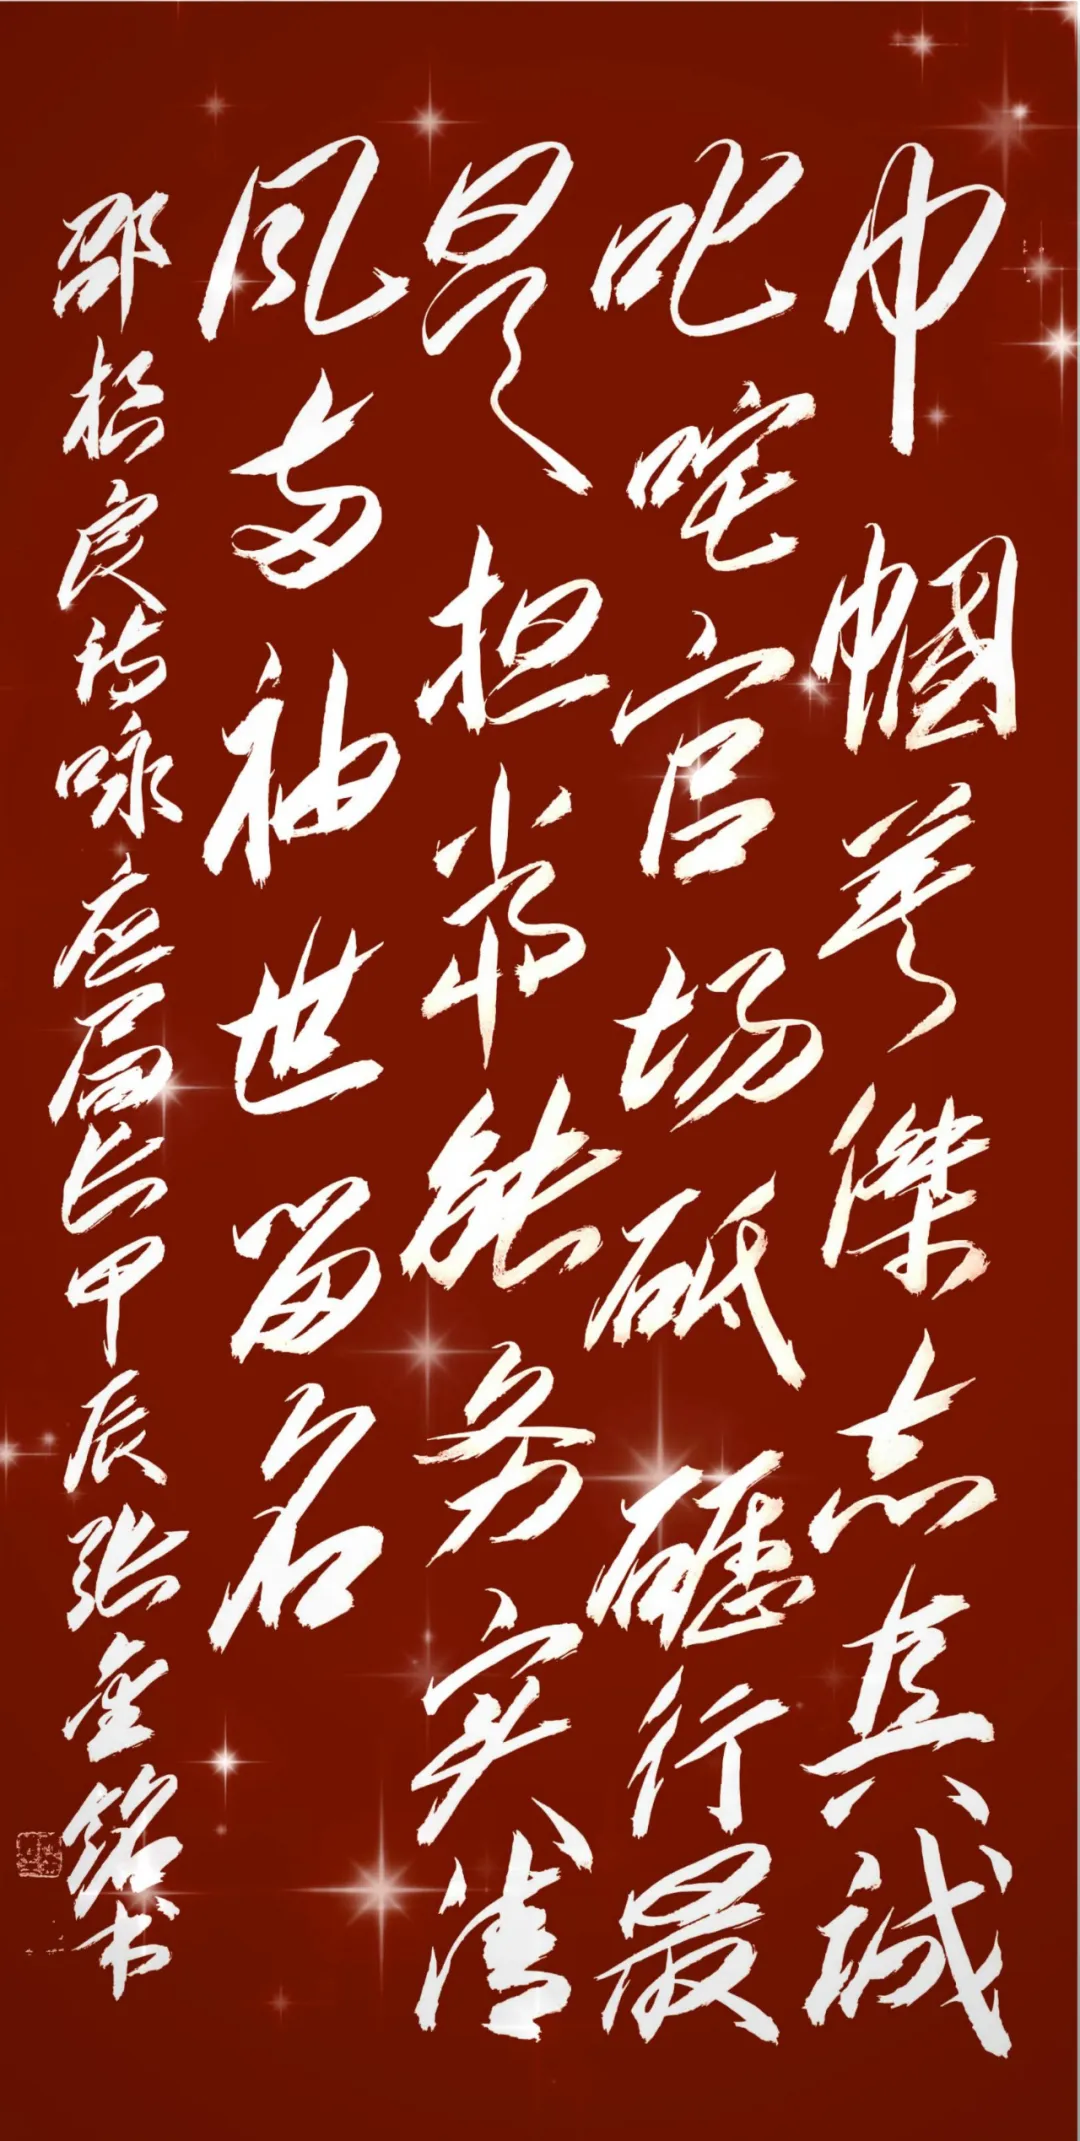 巾帼英傑志真诚
叱咤官场砥礪行最
是担當能务实清
风两袖世留名
邵根良诗咏应局长甲辰张金铭书